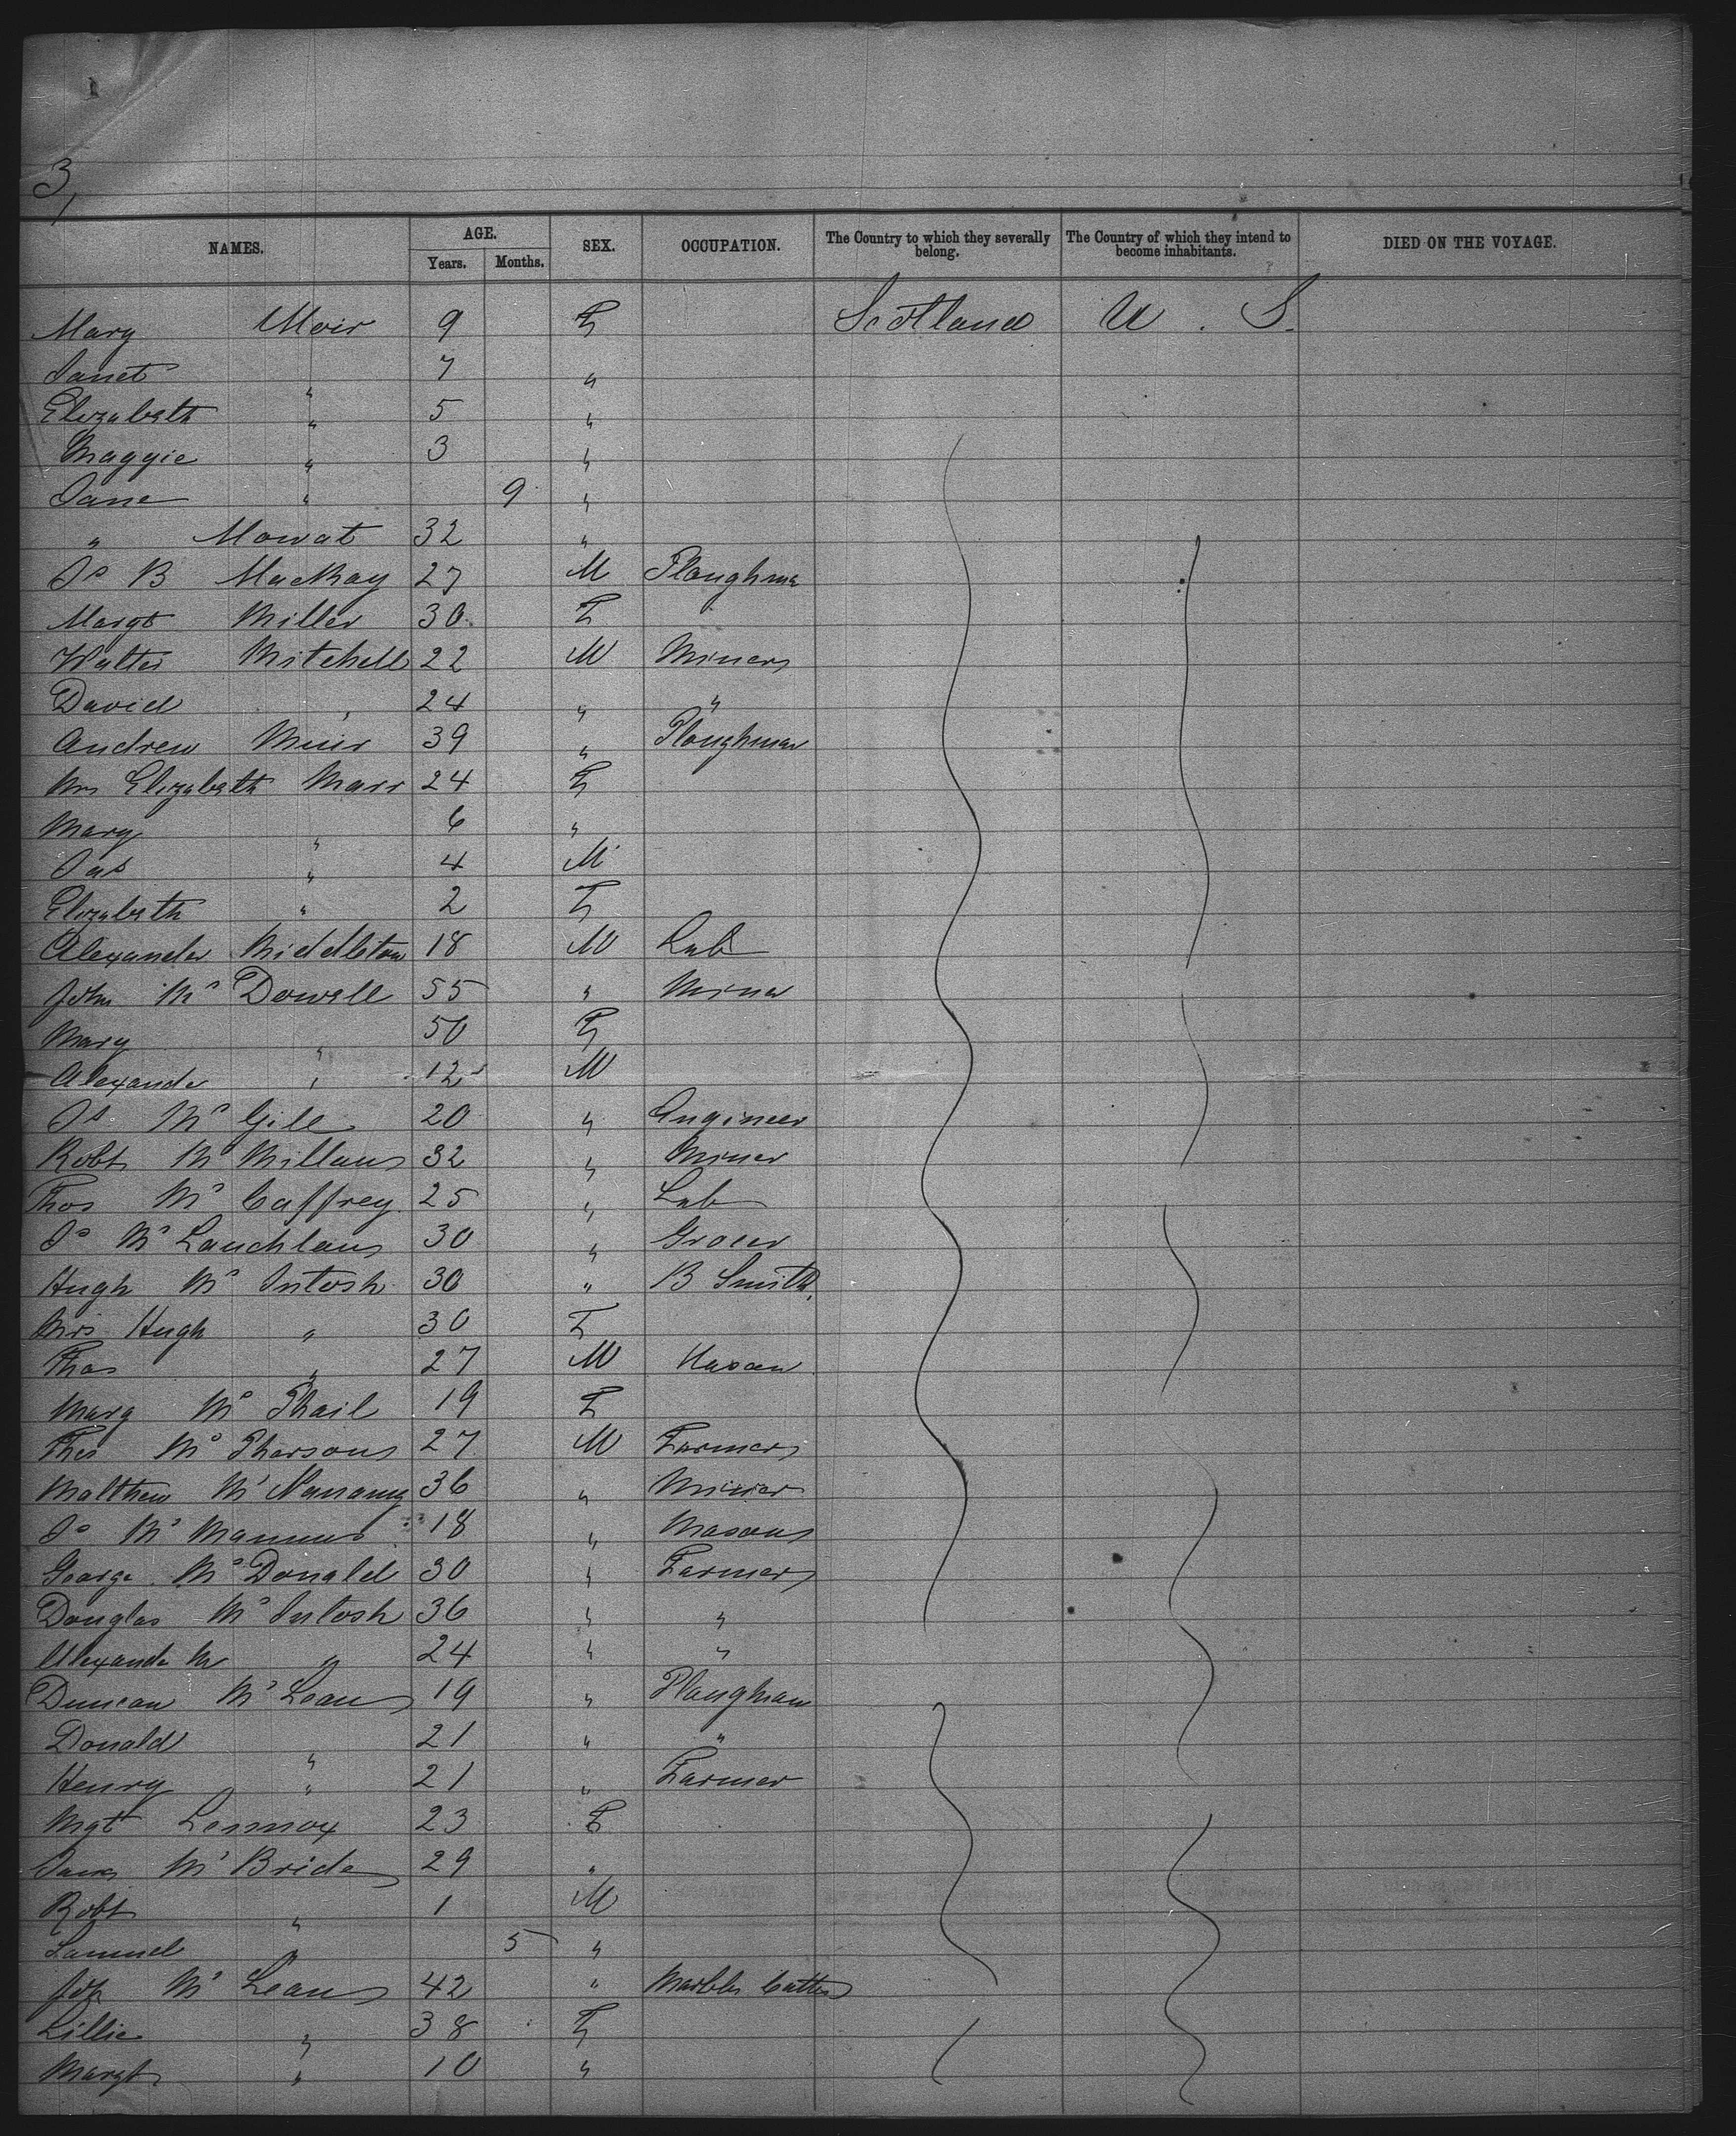 3,
NAMES. AGE. Years. Months. SEX. OCCUPATION. The Country to which they severally belong. The Country of which they intend to become inhabitants. DIED ON THE VOYAGE.
Mary Moir 9 F Scotland U. S.
Janet " 7 "
Elizabeth " 5 "
Maggie " 3 "
Jane " 9 "
" Mowat 32 "
Js B MacKay 27 M Ploughma
Margt Miller 30 F
Walter Mitchell 22 M Miner
David " 24 " "
Andrew Muir 39 " Ploughman
Mrs Elizabeth Marr 24 F
Mary " 6 "
Jas " 4 M
Elizabeth " 2 F
Alexander Middleton 18 M Lab
John Mc Dowall 55 " Miner
Mary " 50 F
Alexander " 12 M
Js Mc Gill 20 " Engineer
Robt Mc Millan 32 " Miner
Thos Mc Caffrey 25 " Lab
Js Mc Lauchlan 30 " Grocer
Hugh Mc Intosh 30 " B Smith
Mrs Hugh " 30 F
Thos " 27 M Mason
Mary Mc Phail 19 F
Thos Mc Pherson 27 M Farmer
Matthew Mc 36 " Miner
Js Mc Manus 18 " Mason
George Mc Donald 30 " Farmer
Douglas Mc Intosh 36 " "
Alexander " 24 " "
Duncan Mc Lean 19 " Ploughman
Donald " 21 " "
Henry " 21 " Farmer
Mgt Lennox 23 F
Mc Bride 29 "
Robt " 1 M
Samuel " 5 "
Mc Lean 42 " Marble Cutter
Lillie " 38 F
Margt " 10 "